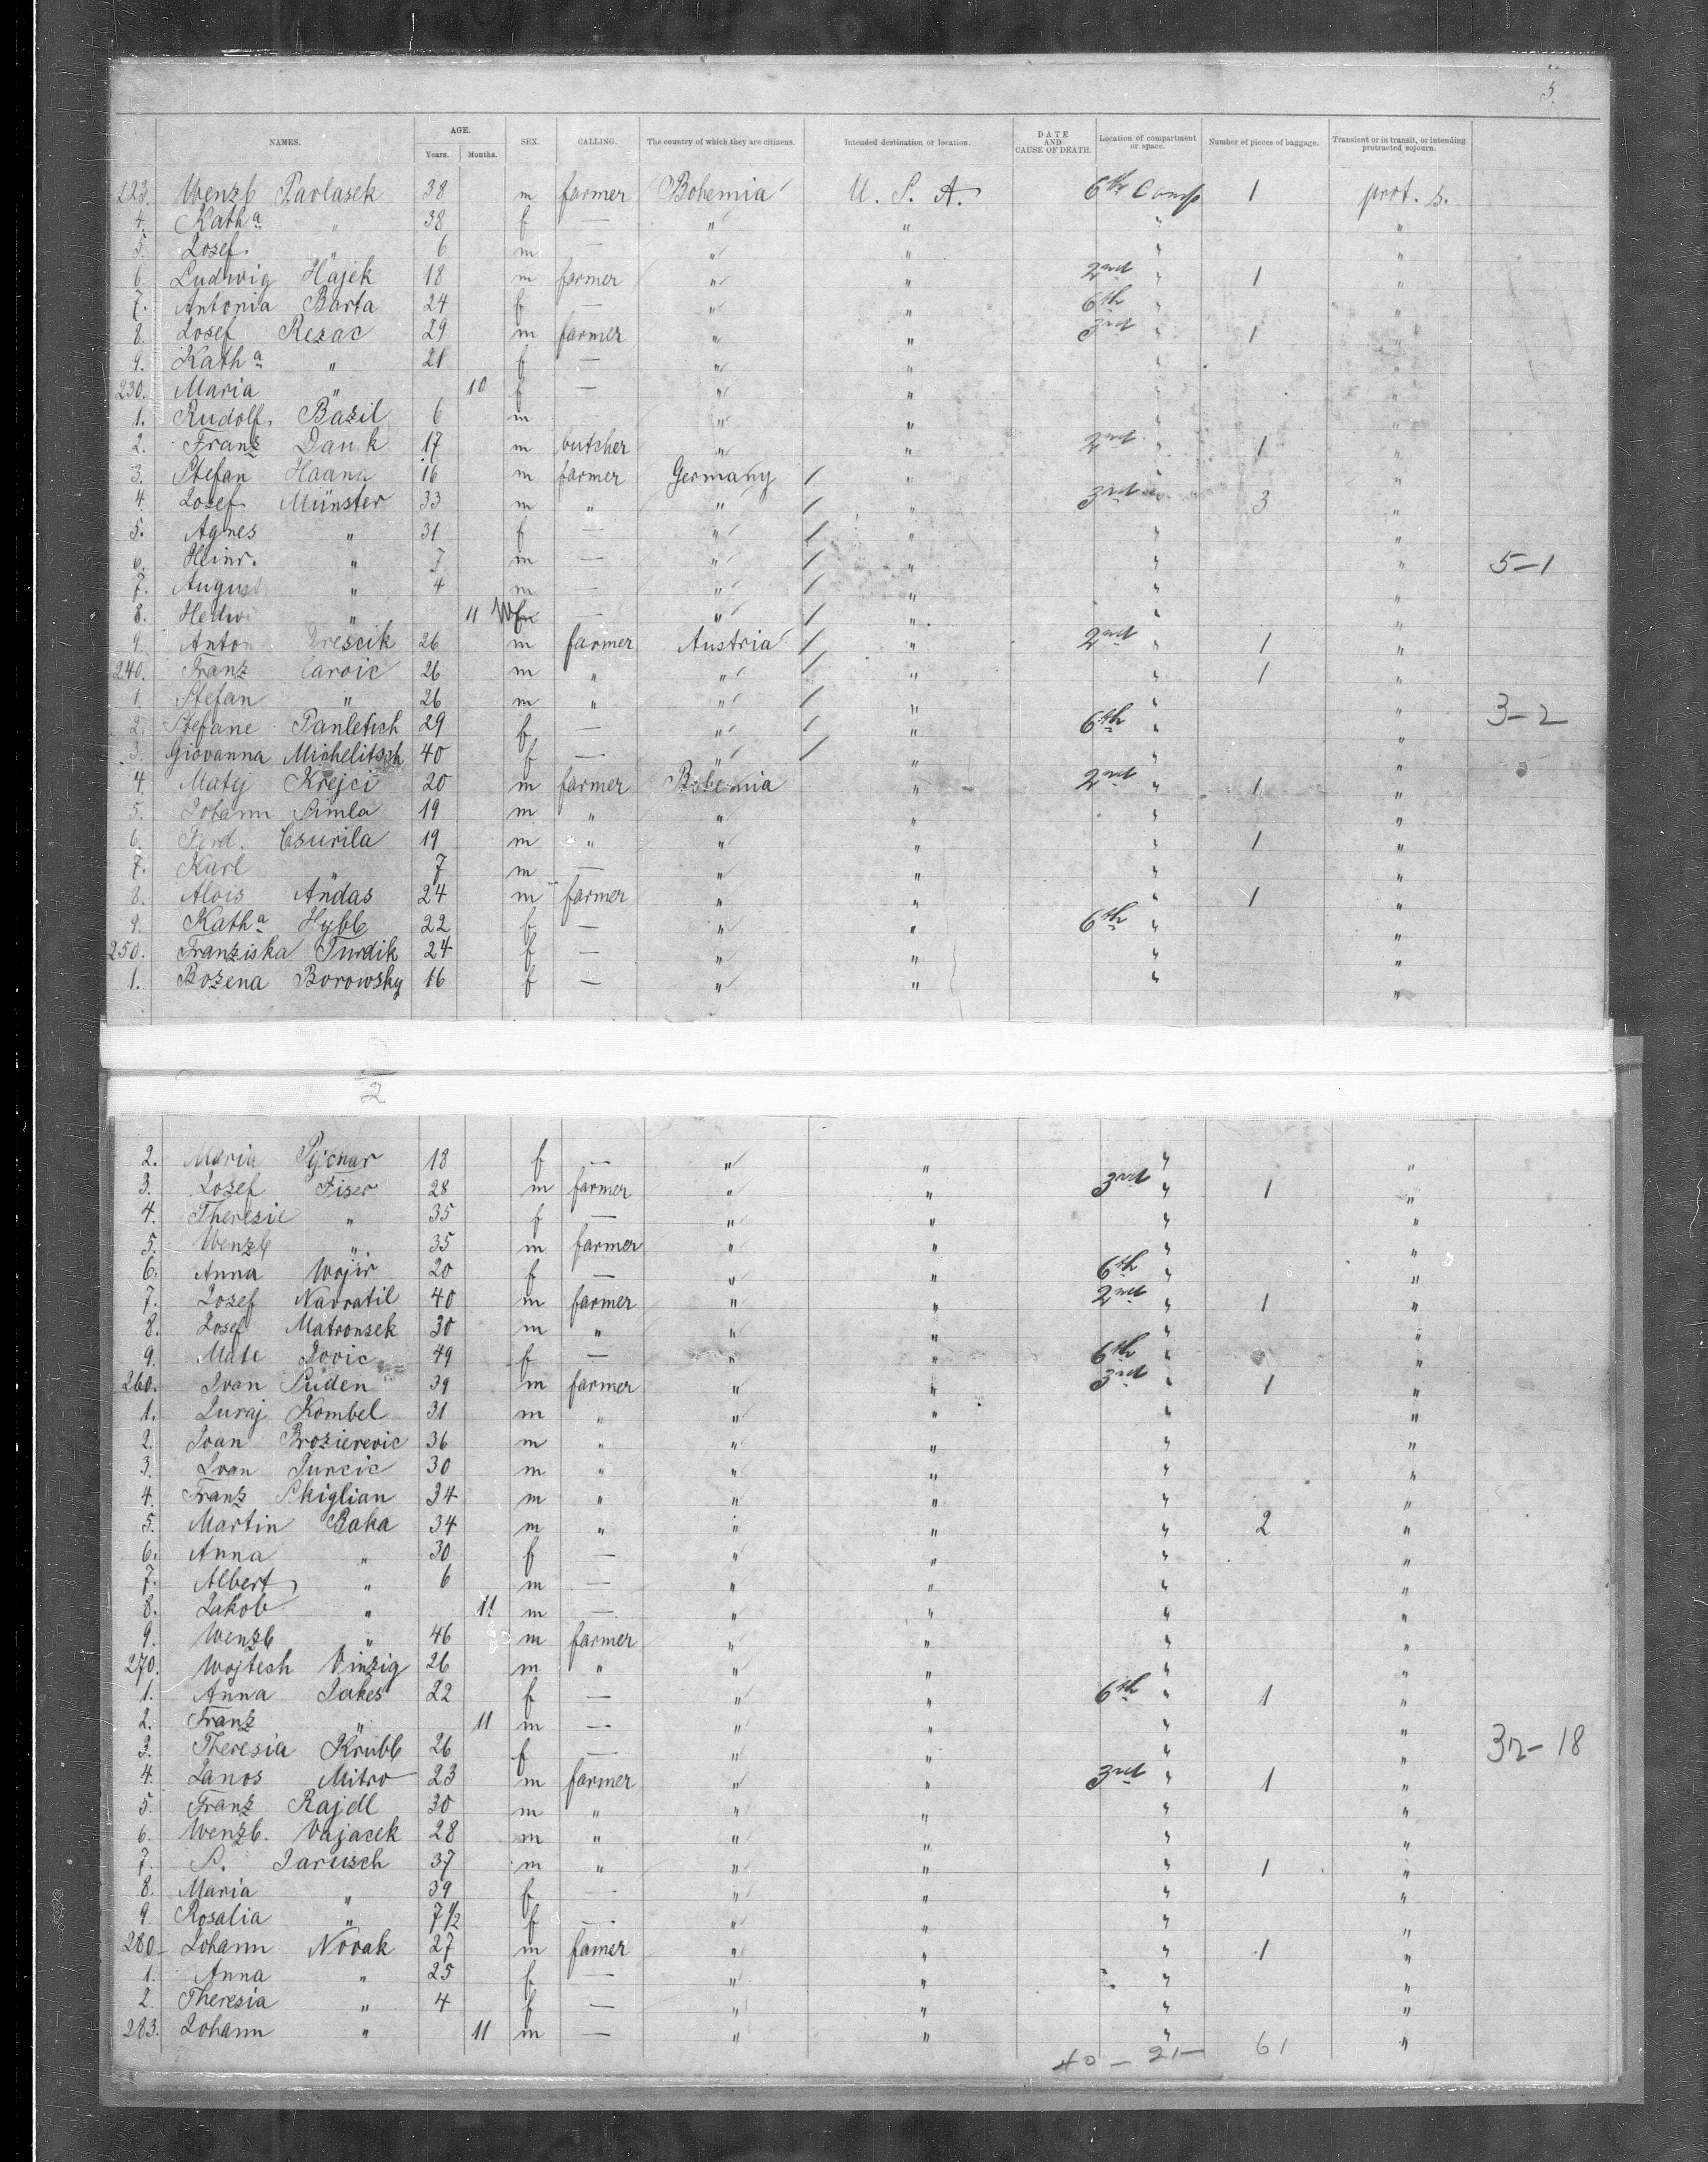 5.
NAMES. AGE. Years. Months. SEX. CALLING. The country of which they are citizens. Intended destination or location. DATE AND CAUSE OF DEATH. Location of compartment or space. Number of pieces of baggage. Transient or in transit, or intending protracted sojourn.
223. Wenzl Pavlasek 38 m farmer Bohemia U. S. A. 6th Comp 1 prot. s.
4. Katha " 38 f — " " " "
5. Josef " 6 m — " " " "
6. Ludwig Hajek 18 m farmer " " 2nd " 1 "
7. Antonia Barta 24 f — " " 6th " "
8. Josef Rezac 29 m farmer " " 3rd " 1 "
9. Katha " 21 f — " " " "
230. Maria " 10 f — " " " "
1. Rudolf Bazil 6 m — " " " "
2. Franz Dauk 17 m butcher " " 2nd " 1 "
3. Stefan Haana 16 m farmer Germany / " " "
4. Josef Münster 33 m " " / " 3rd " 3 "
5. Agnes " 31 f — " / " " "
6. Heinr. " 7 m — " / " " " 5-1
7. August " 4 m — " / " " "
8. Hedwi " 11 — " / " " "
9. Anton 26 m farmer Austria / " 2nd " 1 "
240. Franz 26 m " " / " " 1 "
1. Stefan " 26 m " " / " " " 3-2
2. Stefane Panletich 29 f — " / " 6th " "
3. Giovanna Michelitsch 40 f — " / " " "
4. Matej Krejci 20 m farmer Bohemia " 2nd " 1 "
5. Johann Simla 19 m " " " " "
6. Ferd. Csurila 19 m " " " " 1 "
7. Karl " 7 m — " " " "
8. Alois Andas 24 m farmer " " " 1 "
9. Katha Hybl 22 f — " " 6th " "
250. Franziska Turdik 24 f — " " " "
1. Bozena Borowsky 16 f — " " " "
2
2. Maria 18 f — " " " "
3. Josef Fiser 28 m farmer " " 3rd " 1 "
4. Theresie " 35 f — " " " "
5. Wenzl " 35 m farmer " " " "
6. Anna Wojir 20 f — " " 6th " "
7. Josef Navratil 40 m farmer " " 2nd " 1 "
8. Josef Matronsek 30 m " " " " "
9. Mate Jovic 49 f — " " 6th " "
260. Ivan Suden 39 m farmer " " 3rd " 1 "
1. Juraj Kombel 31 m " " " " "
2. Ivan Brozierevic 36 m " " " " "
3. Ivan Jurcic 30 m " " " " "
4. Franz Skiglian 34 m " " " " "
5. Martin Baka 34 m " " " " 2 "
6. Anna " 30 f — " " " "
7. Albert " 6 m — " " " "
8. Jakob " 11 m — " " " "
9. Wenzl " 46 m farmer " " " "
270. Wojtech Vinzig 26 m " " " " "
1. Anna Jakes 22 f — " " 6th " 1 "
2. Franz " 11 m — " " " "
3. Theresia Krubl 26 f — " " " " 32-18
4. Janos Mitro 23 m farmer " " 3rd " 1 "
5. Franz Rajdl 30 m " " " " "
6. Wenzl. Vajacek 28 m " " " " "
7. S. Jarusch 37 m " " " " 1 "
8. Maria " 39 f — " " " "
9. Rosalia " 7 1/2 f — " " " "
280. Johann Novak 27 m famer " " " 1 "
1. Anna " 25 f — " " " "
2. Theresia " 4 f — " " " "
283. Johann " 11 m — " " " "
40 - 21 - 61